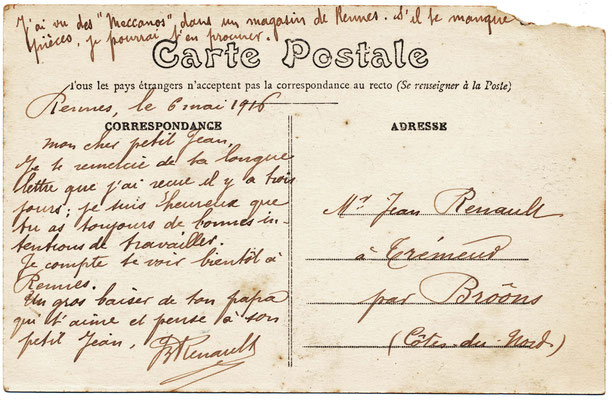 J'ai vu des "Meccanos", dans un magasin de Rennes. S'il te manque
pièces, je pourrai t'en procurer.
Carte Postale
Tous les pays étrangers n'acceptent pas la correspondance au recto (Se renseigner à la Poste)
Rennes, le 6 mai 1916
CORRESPONDANCE
ADRESSE
Mon cher petit Jean,
Je te remercie de ta longue
lettre que j'ai reçue il y a trois
jours; je suis heureux que
tu as toujours de bonnes in-
tentions de travailler.
Je compte te voir bientôt à
Rennes.
Un gros baiser de ton papa
qui t'aime et pense à son
petit Jean,
Renault
Mr Jean Renault
à Trémeur
par Brôons
(Côtes-du-Nord)